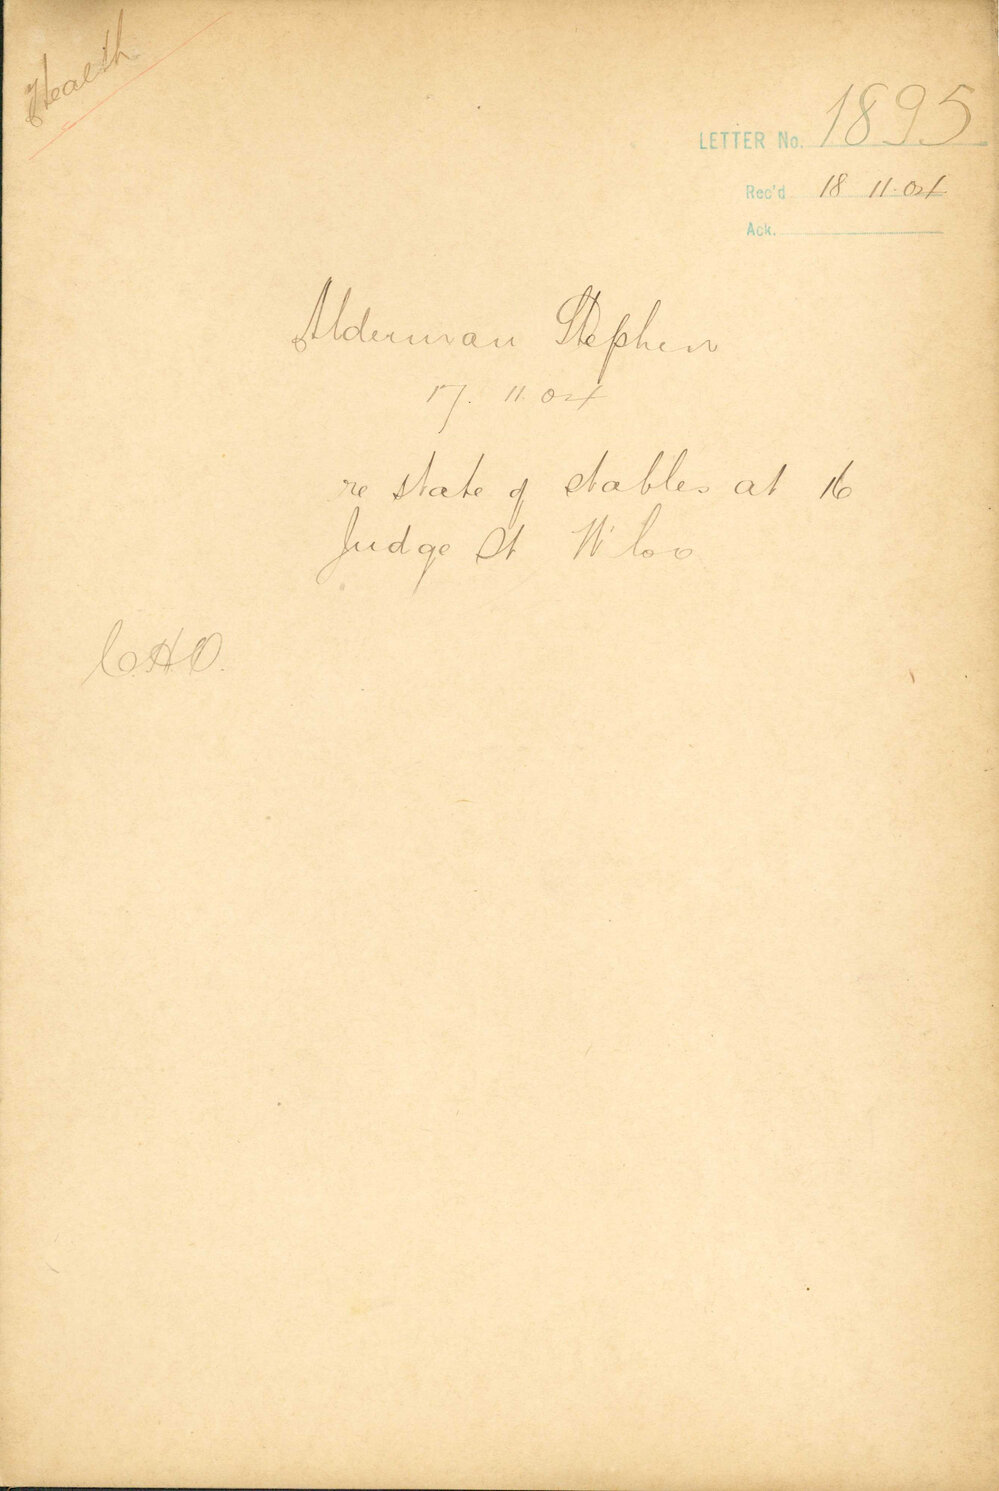 Health
LETTER No. 1895
Rec'd 18 11.04
Ack.
Alderman Stephen
17. 11. 04
re state of stables at 16
Judge St W'loo
C.H.O.